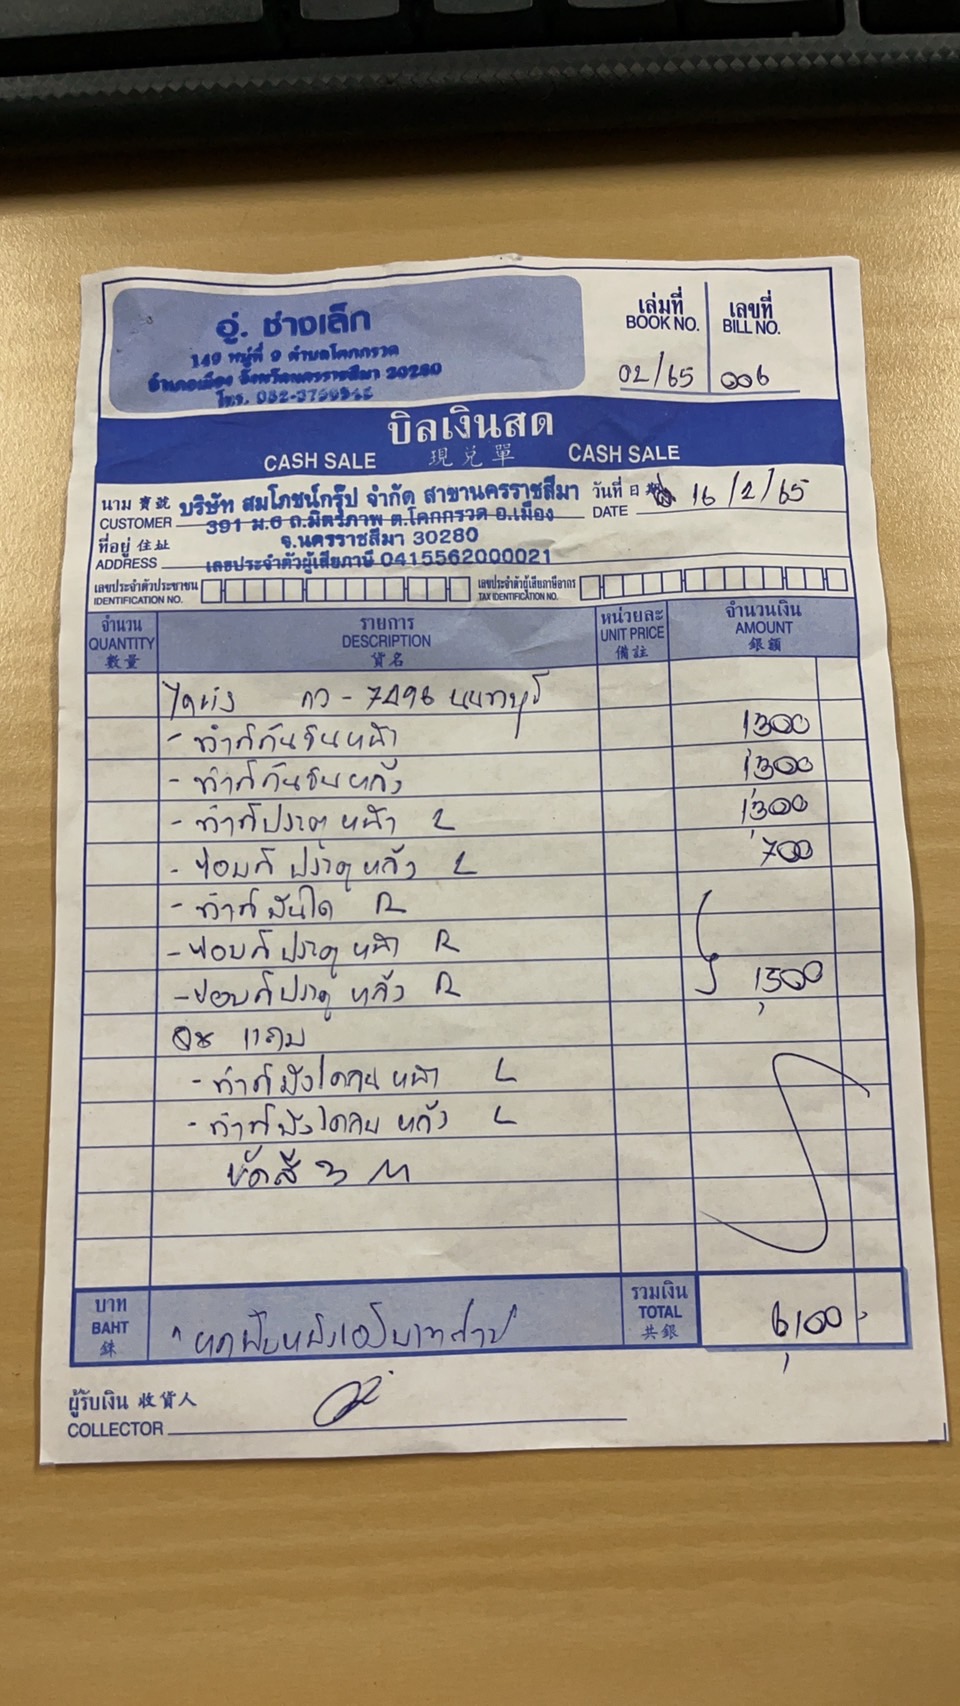 อู่. ช่างเล็ก
149 หมู่ที่ 9 ตำบลโคกกรวด
อำเภอเมือง จังหวัดนครราชสีมา 30280
โทร.
เล่มที่
BOOK NO.
02/65
เลขที่
BILL NO.
006
บิลเงินสด
CASH SALE 現兌單 CASH SALE
นาม 寶號 บริษัท สมโภชน์กรุ๊ป จำกัด สาขานครราชสีมา
CUSTOMER 391 ม.6 ถ.มิตรภาพ ต.โคกกรวด อ.เมือง
ที่อยู่ 住址 จ.นครราชสีมา 30280
ADDRESS เลขประจำตัวผู้เสียภาษี 0415562000021
วันที่ 日期 16/2/65
DATE
เลขประจำตัวประชาชน
IDENTIFICATION NO.
เลขประจำตัวผู้เสียภาษีอากร
TAX IDENTIFICATION NO.
จำนวน
QUANTITY
數量
รายการ
DESCRIPTION
貨名
หน่วยละ
UNIT PRICE
備註
จำนวนเงิน
AMOUNT
銀額
กว - 7496 นนทบุรี
- ทำสีกันชนหน้า 1300
- ทำสีกันชนหลัง 1300
- ทำสีประตูหน้า L 1300
- ซ่อมสีประตูหลัง L 700
- ทำสีบันได R
- ซ่อมสีประตูหน้า R
- ซ่อมสีประตูหลัง R 1500
แถม
- ทำสีบังโคลนหน้า L
- ทำสีบังโคลนหลัง L
ขัดสี 3 M
บาท
BAHT
銖
หกพันหนึ่งร้อยบาทถ้วน
รวมเงิน
TOTAL
共銀
6,100
ผู้รับเงิน 收貨人
COLLECTOR